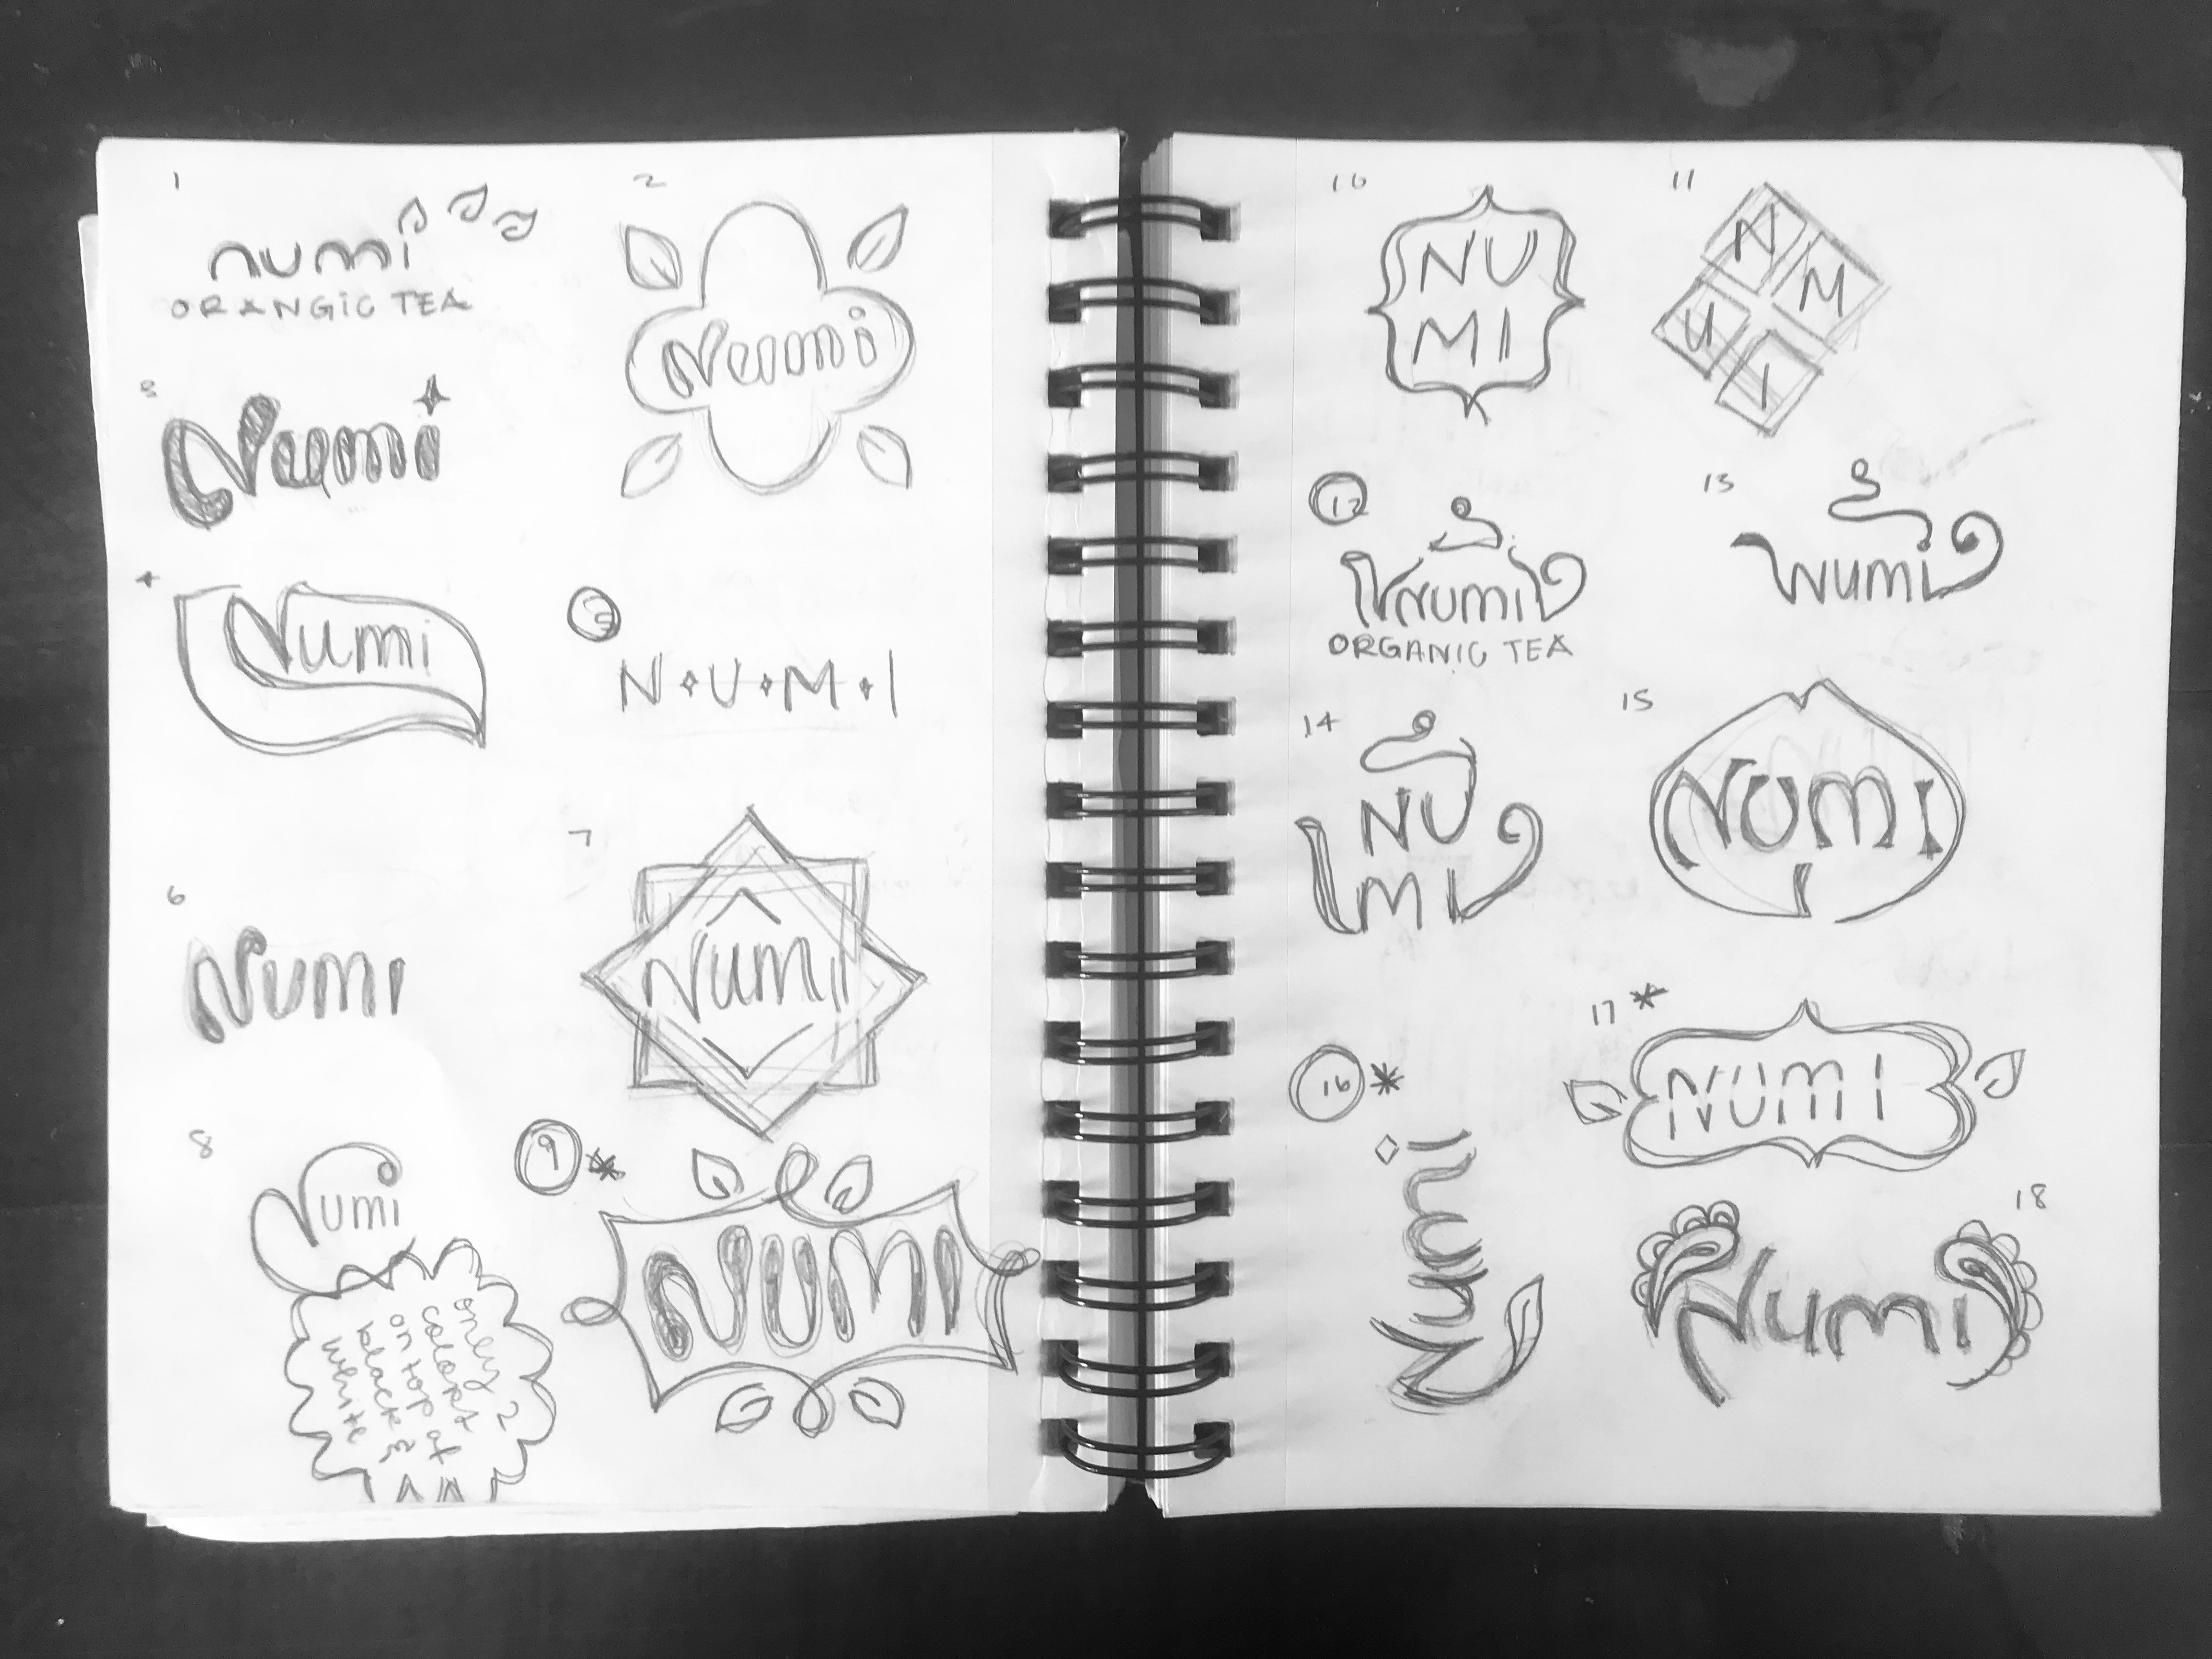 1
numi
ORANGIC TEA
2
Numi
3
Numi
4
Numi
5
N·U·M·I
6
NUMI
7
Numi
8
Numi
only 2
colors
on top of
black &
white
9 *
NUMI
10
NU
MI
11
N
M
U
I
12
Numi
ORGANIC TEA
13
Numi
14
NU
MI
15
NUMI
16 *
Numi
17 *
NUMI
18
Numi